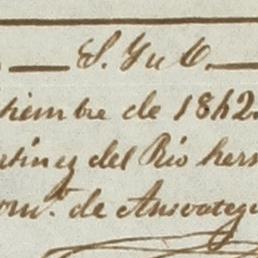 S. Y u O.
tiembre de 1842.
tinez del Rio herm
om.^t de Ansoategui